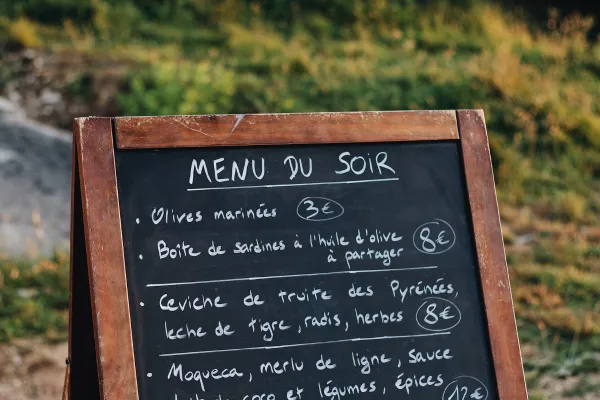 MENU DU SOIR
• Olives marinées 3€
• Boîte de sardines à l'huile d'olive
à partager 8€
• Ceviche de truite des Pyrénées,
leche de tigre, radis, herbes 8€
• Moqueca, merlu de ligne, sauce
coco et légumes, épices 12€